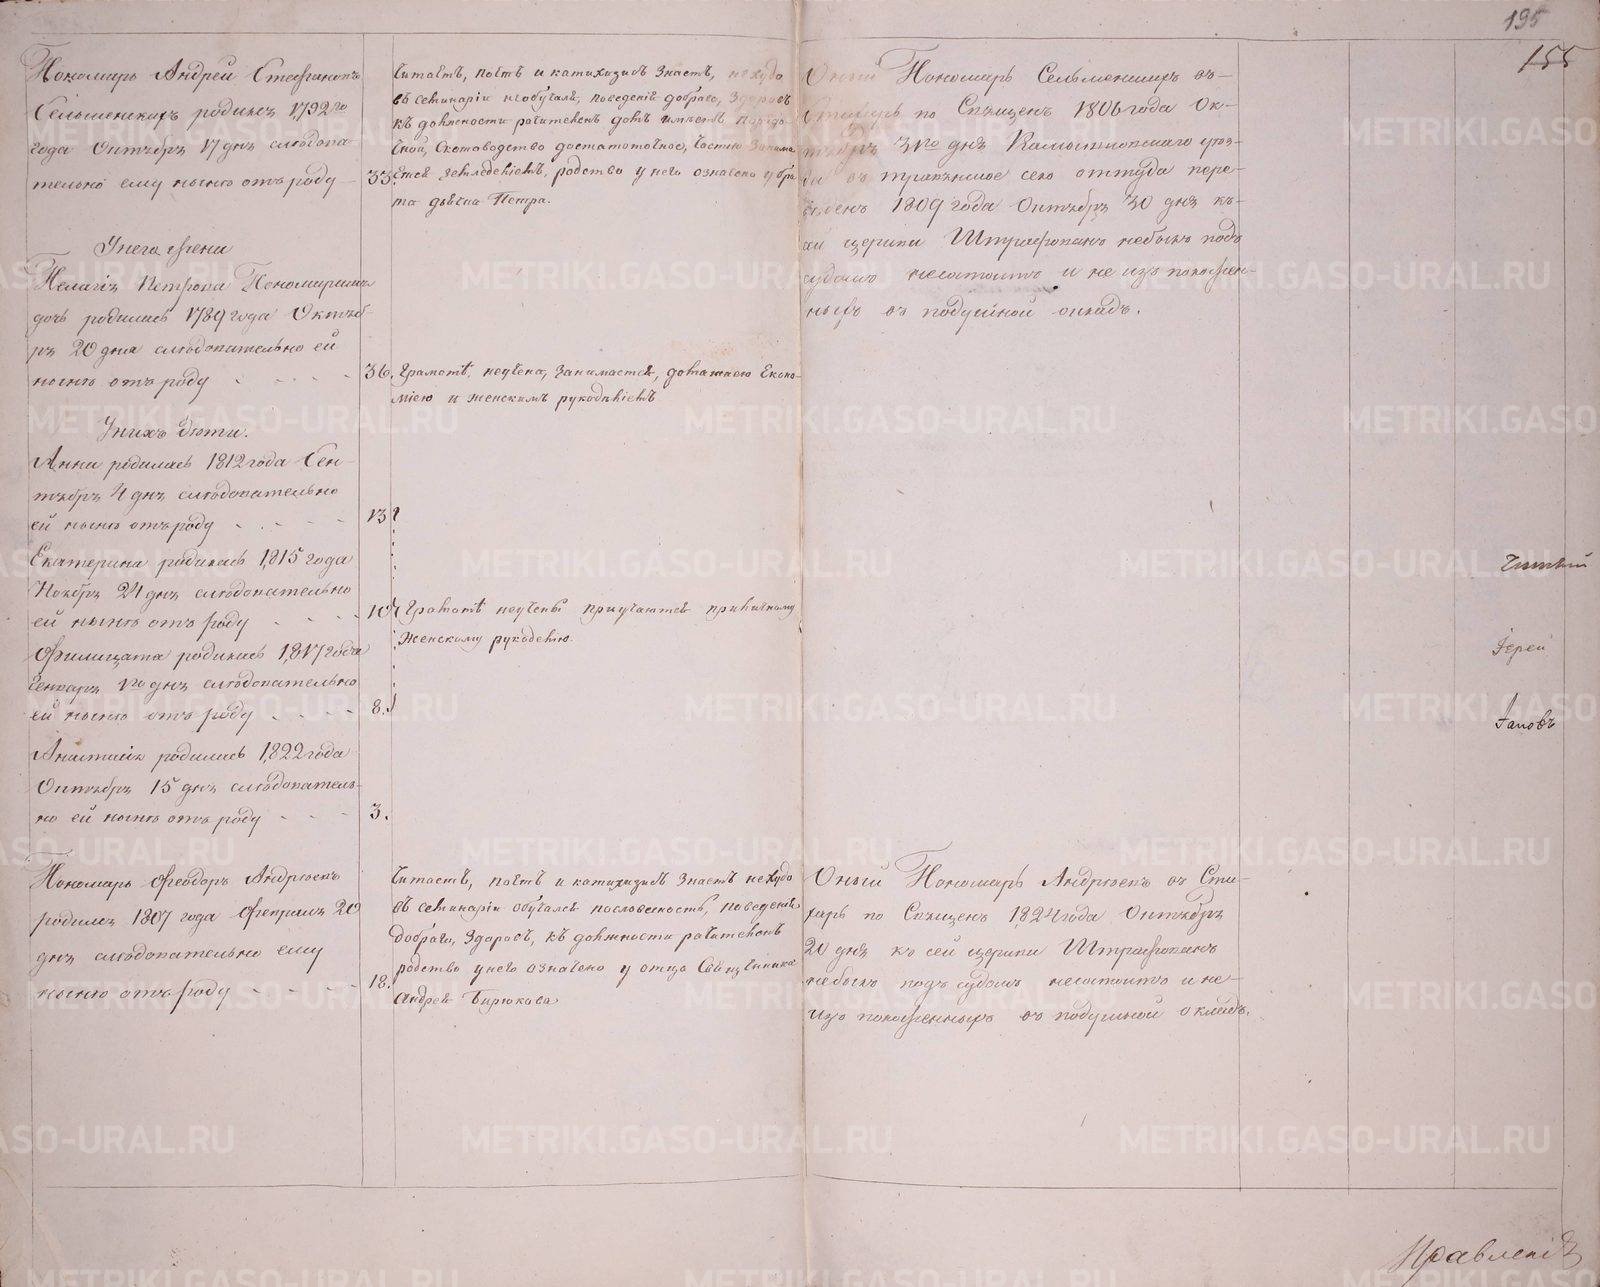 195
155
Пономарь Андрей Стефановъ
Сельменскихъ родился 1792го
года Октября 17 дня следова
тельно ему ныне отъ роду
33.
Читаетъ, поетъ и катихизисъ знаетъ, не худо
въ семинаріи необучалъ, поведеніе добраго, здоровъ
къ должности рачителенъ домъ имеетъ порядо-
чной, скотоводство достаточное, частію занима
ется земледеліемъ, родство у него означено у бра
та дьячка Петра.
Оный Пономарь Сельменскихъ въ
Стихарь посвященъ 1806 года Ок-
тября 31го дня Камышловскаго уез-
да въ травянское село оттуда пере-
веденъ 1809 года Октября 30 дня къ
сей церкви Штрафованъ небылъ подъ
судомъ несостоитъ и не изъ положен-
ныхъ въ подушной окладъ.
У него жена
Пелагія Петрова Пономарская
дочь родилась 1789 года Октяб-
ря 20 дня следовательно ей
ныне отъ роду
36.
Грамоте неучена, занимается, домашнею Еконо-
міею и женскимъ рукоделіемъ
У нихъ дети.
Анна родилась 1812 года Сен-
тября 4 дня следовательно
ей ныне отъ роду
13
Екатерина родилась 1815 года
Ноября 24 дня следовательно
ей ныне отъ роду
10
Грамоте неучены приучаются приличному
женскому рукоделію.
Филицата родилась 1817 года
Генваря 1го дня следовательно
ей ныне отъ роду
8.
Анастасія родилась 1822 года
Октября 15 дня следователь-
но ей ныне отъ роду
3.
Іерей
Пономарь Феодоръ Андреевъ
родился 1807 года Февраля 20
дня следовательно ему
ныне отъ роду
18.
Читаетъ, поетъ и катихизисъ знаетъ не худо
въ семинаріи обучался пословесность, поведенія
добраго, здоровъ, къ должности рачителенъ
родство у него означено у отца Священника
Андрея Бирюкова
Оный Пономарь Андреевъ въ Сти-
харь посвященъ 1824 года Октября
20 дня къ сей церкви Штрафованъ
небылъ подъ судомъ несостоитъ и не-
изъ положенныхъ въ подушной окладъ.
Правленія
METRIKI.GASO-URAL.RU